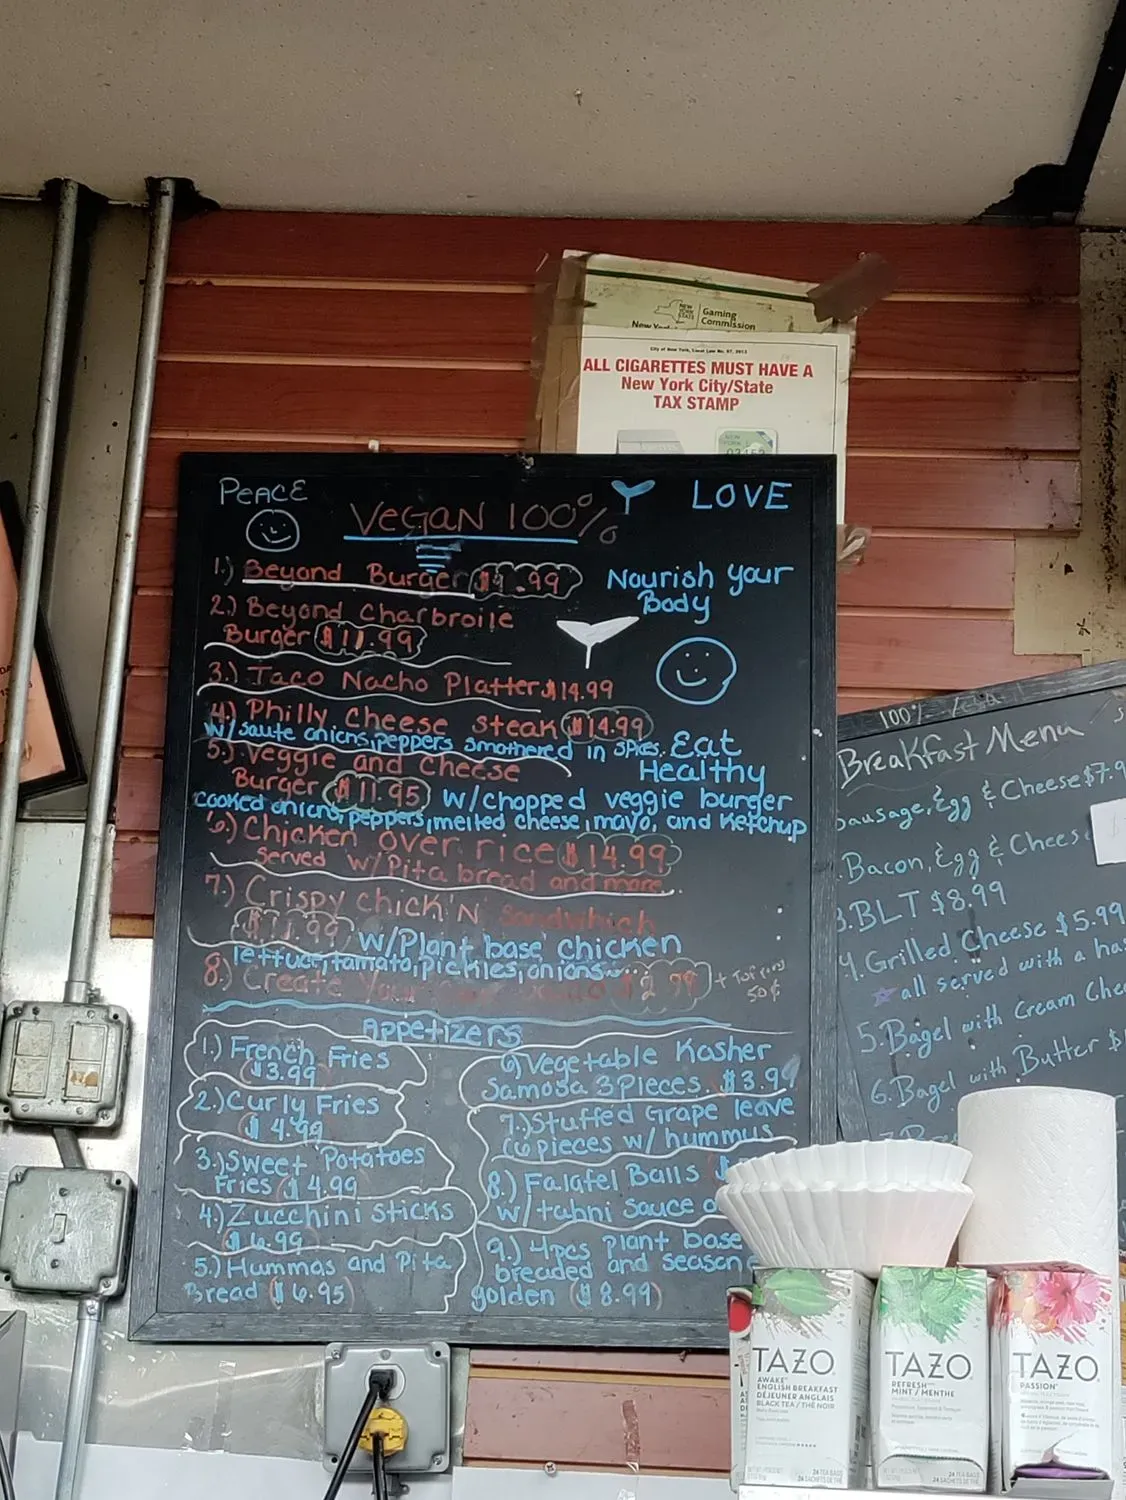 NEW YORK STATE
Gaming Commission
City of New York, Local Law No. 97, 2013
ALL CIGARETTES MUST HAVE A
New York City/State
TAX STAMP
PEACE
LOVE
VEGAN 100%
1.) Beyond Burger
Nourish your
Body
2.) Beyond Charbroile
Burger $11.99
3.) Taco Nacho Platter $14.99
4.) Philly Cheese steak $14.99
w/saute onions, peppers smothered in spices.
Eat
Healthy
5.) Veggie and Cheese
Burger $11.95 w/chopped veggie burger
cooked onions, peppers, melted cheese, mayo, and Ketchup
6.) Chicken over rice $14.99
served w/Pita bread and more.
7.) Crispy chick'N Sandwhich
$11.99 w/Plant base chicken
lettuce, tamato, pickles, onions...
8.) Create Your
50¢
Appetizers
1.) French Fries
$3.99
2.) Curly Fries
$4.99
3.) Sweet Potatoes
Fries $4.99
4.) Zucchini sticks
$6.99
5.) Hummas and Pita
Bread $6.95
6) Vegetable Kosher
Samosa 3 Pieces $3.99
7.) Stuffed Grape leave
(6 pieces w/ hummus
8.) Falafel Balls
w/tahni sauce
9.) 4pcs plant base
breaded and season
golden ($8.99)
100%
Breakfast Menu
Sausage, Egg & Cheese $7.9
Bacon, Egg & Chees
3. BLT $8.99
4. Grilled Cheese $5.99
all served with a has
5. Bagel with Cream Che
6. Bagel with Butter $
TAZO
AWAKE
ENGLISH BREAKFAST
DÉJEUNER ANGLAIS
BLACK TEA / THÉ NOIR
TAZO
REFRESH
MINT / MENTHE
TAZO
PASSION